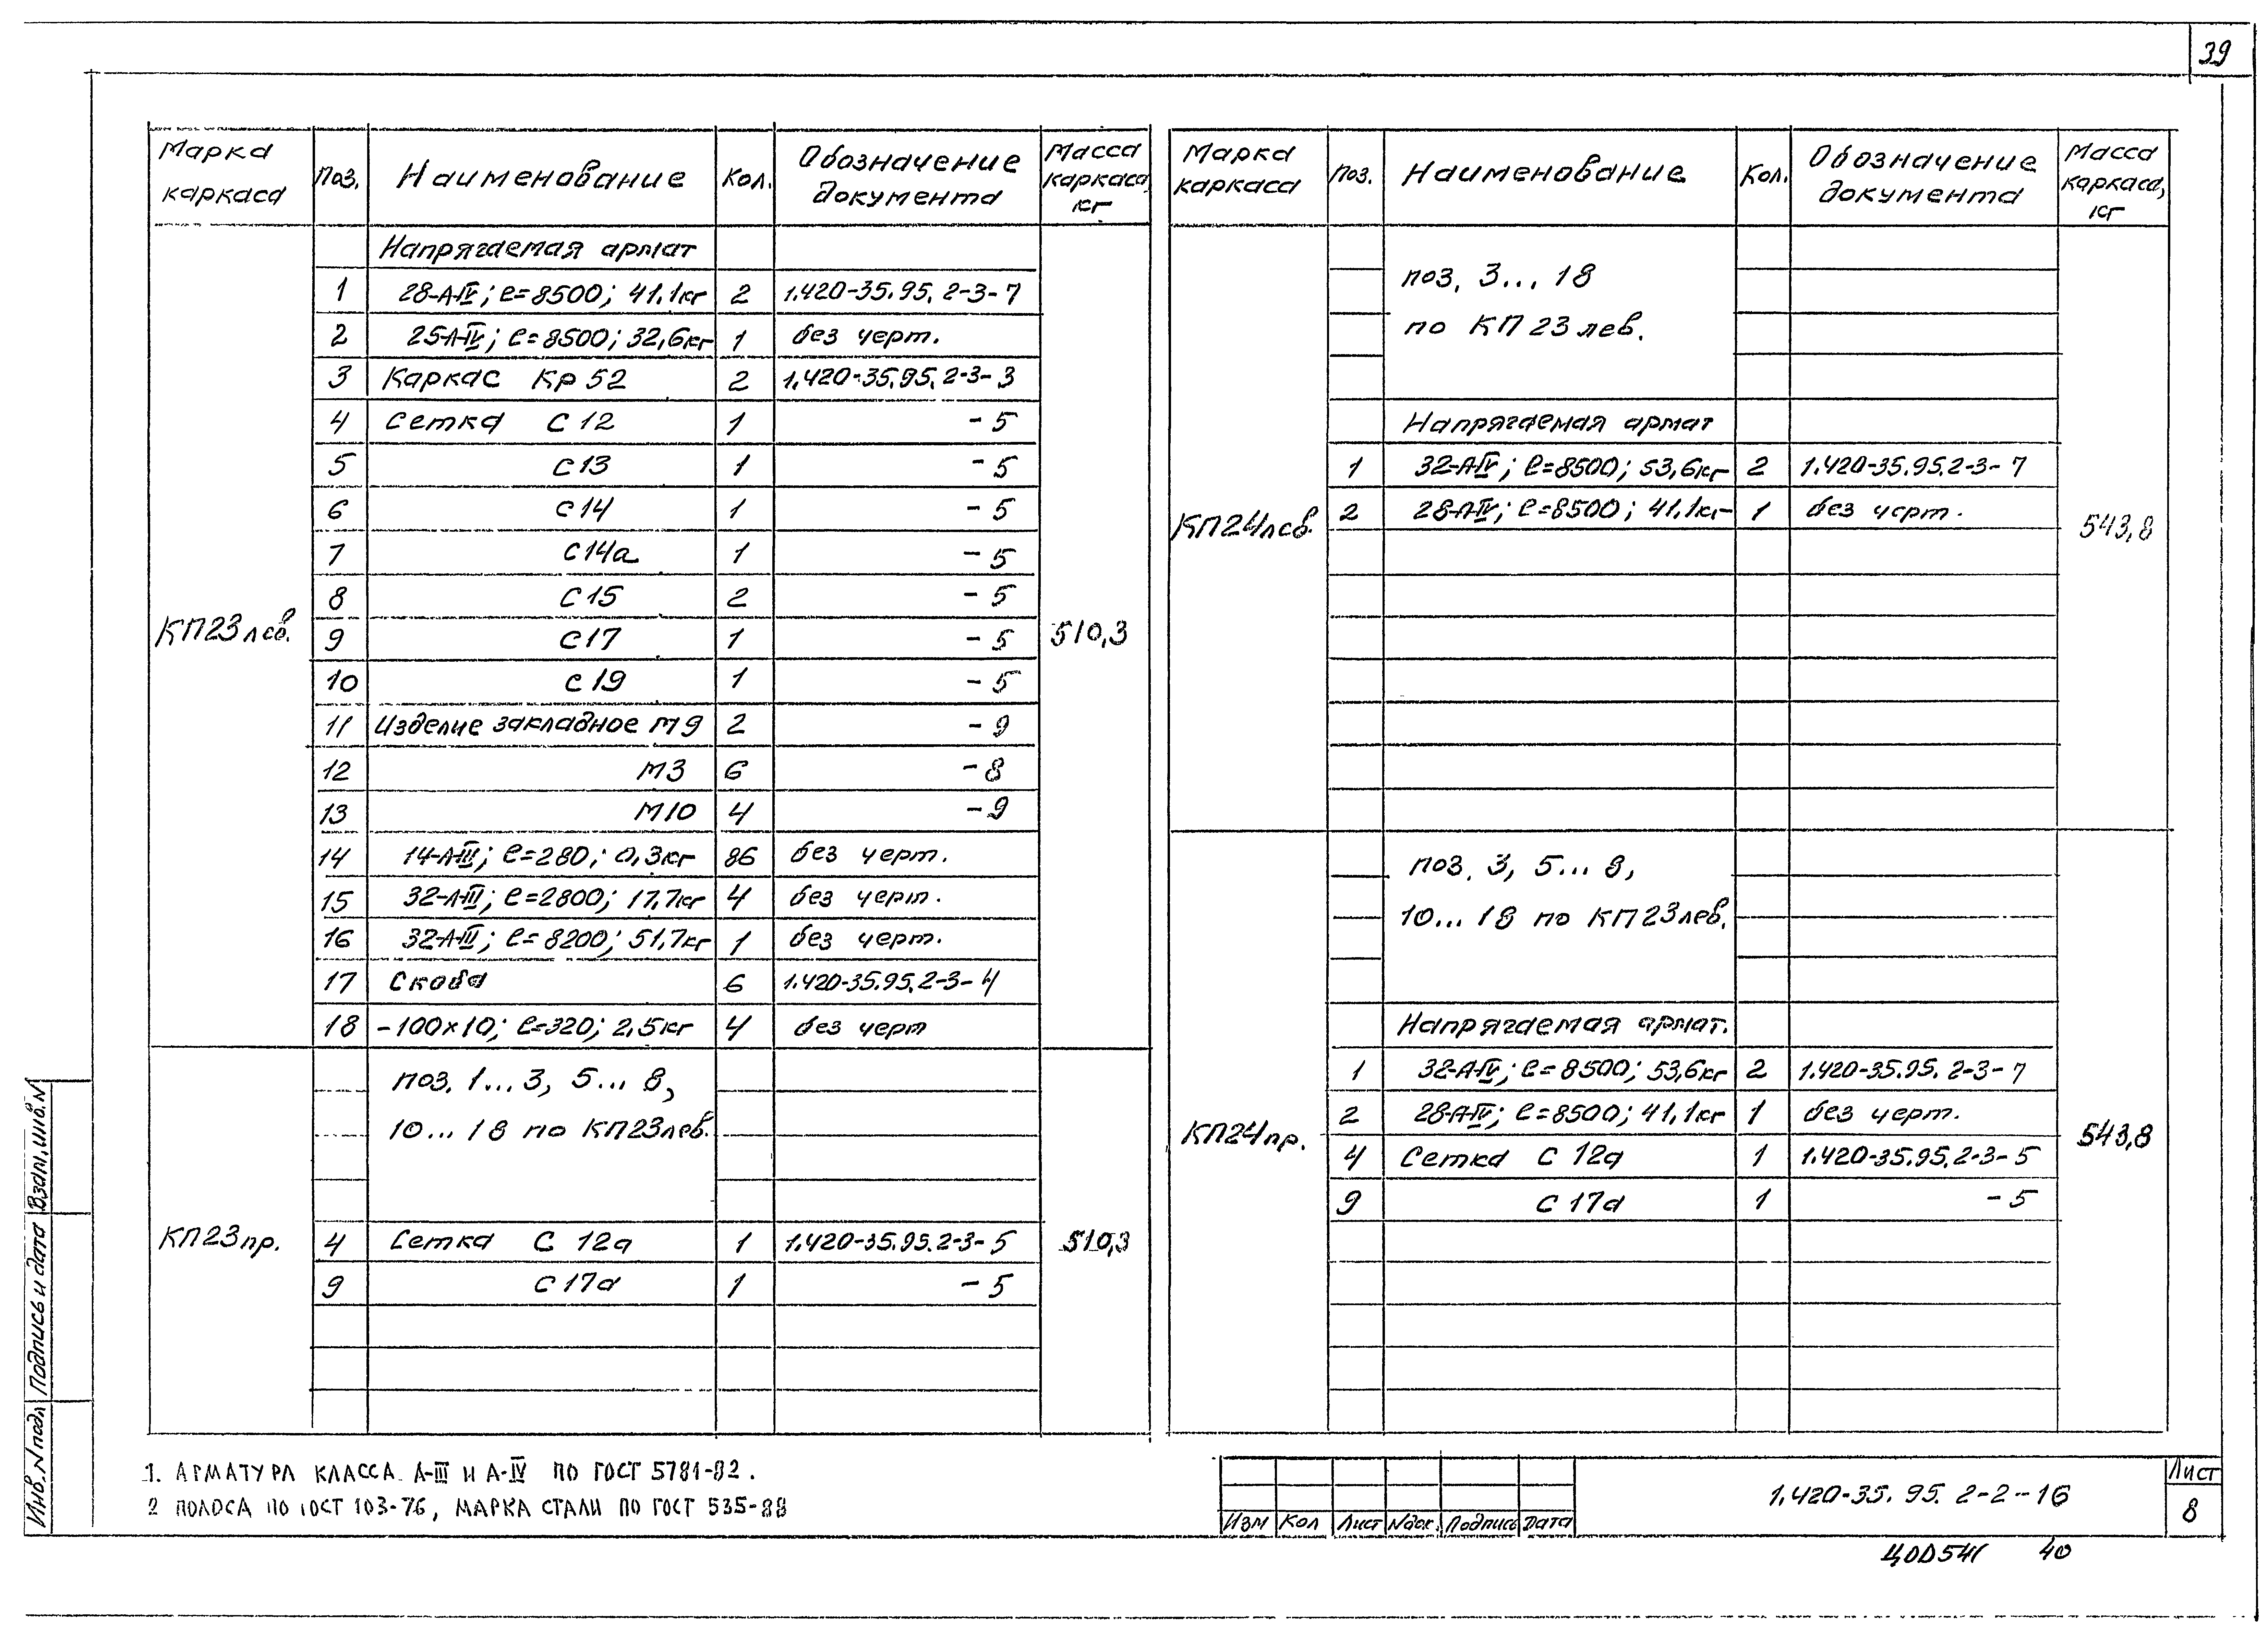 39
Марка каркаса | Поз. | Наименование | Кол. | Обозначение документа | Масса каркаса, кг
Напрягаемая армат
1 | 28-А-IV; ℓ=8500; 41,1кг | 2 | 1.420-35.95.2-3-7
2 | 25-А-IV; ℓ=8500; 32,6кг | 1 | без черт.
3 | Каркас Кр 52 | 2 | 1.420-35.95.2-3-3
4 | Сетка С 12 | 1 | -5
5 | С13 | 1 | -5
6 | С14 | 1 | -5
7 | С14а | 1 | -5
8 | С15 | 2 | -5
КП23лев. | 9 | С17 | 1 | -5 | 510,3
10 | С19 | 1 | -5
11 | Изделие закладное М9 | 2 | -9
12 | М3 | 6 | -8
13 | М10 | 4 | -9
14 | 14-А-III; ℓ=280; 0,3кг | 86 | без черт.
15 | 32-А-III; ℓ=2800; 17,7кг | 4 | без черт.
16 | 32-А-III; ℓ=8200; 51,7кг | 1 | без черт.
17 | Скоба | 6 | 1.420-35.95.2-3-4
18 | -100×10; ℓ=320; 2,5кг | 4 | без черт
поз. 1...3, 5...8,
10...18 по КП23лев.
КП23пр. | 4 | Сетка С 12а | 1 | 1.420-35.95.2-3-5 | 510,3
9 | С17а | 1 | -5
Марка каркаса | Поз. | Наименование | Кол. | Обозначение документа | Масса каркаса, кг
поз. 3...18
по КП23лев.
Напрягаемая армат
1 | 32-А-IV; ℓ=8500; 53,6кг | 2 | 1.420-35.95.2-3-7
КП24лев. | 2 | 28-А-IV; ℓ=8500; 41,1кг | 1 | без черт. | 543,8
поз. 3, 5...8,
10...18 по КП23лев.
Напрягаемая армат.
1 | 32-А-IV; ℓ=8500; 53,6кг | 2 | 1.420-35.95.2-3-7
КП24пр. | 2 | 28-А-IV; ℓ=8500; 41,1кг | 1 | без черт. | 543,8
4 | Сетка С 12а | 1 | 1.420-35.95.2-3-5
9 | С 17а | 1 | -5
1. АРМАТУРА КЛАССА А-III И А-IV ПО ГОСТ 5781-82.
2 ПОЛОСА ПО ГОСТ 103-76, МАРКА СТАЛИ ПО ГОСТ 535-88
Изм | Кол | Лист | Nдок. | Подпись | Дата
1.420-35.95.2-2-16
Лист
8
40
Инв.N подл | Подпись и дата | Взам.инв.N